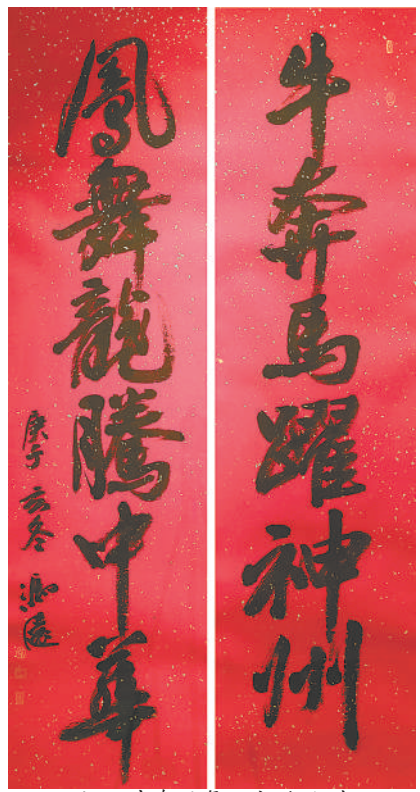 牛奔馬躍神州
鳳舞龍騰中華
庚子玄冬 馮遠